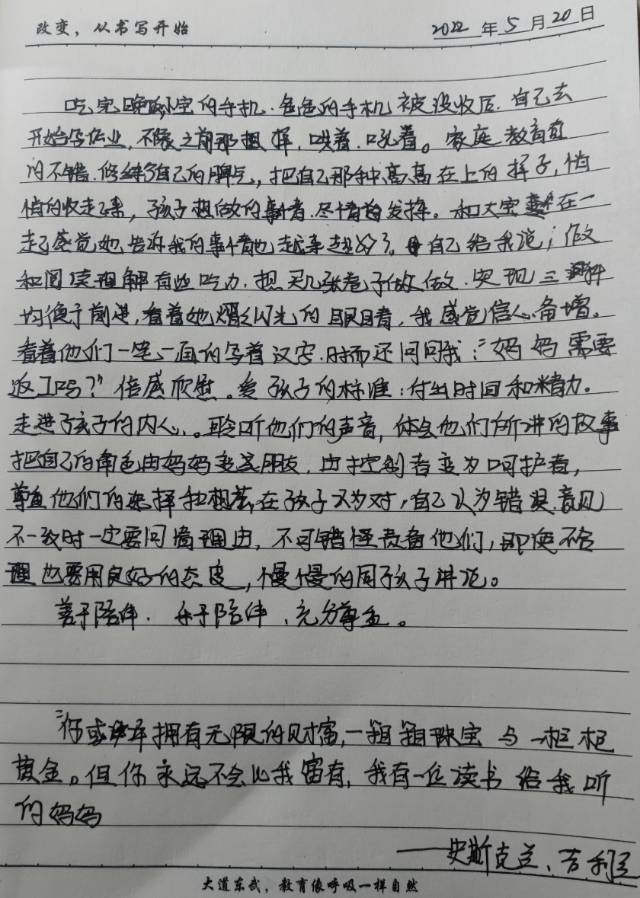 改变，从书写开始 2022年5月20日
吃完晚饭宝的手机.爸爸的手机被没收后.自己去
开始写作业，不像之前那想择，哄着.吼着。家庭教育真
的不错.修练了自己的脾气，把自己那种高高在上的样子，悄
悄的收走了，孩子想做的事，尽情的发挥。和大宝在一
起感觉她告诉我的事情也越来越好了。自己给我说；做
和阅读理解有些吃力.想买几张卷子做做.实现三科
均衡于前进，看着她熠熠闪光的眼睛，我感觉信心备增。
看着他们一笔一画的写着汉字.时而还问问我："妈妈需要
返工吗？"倍感欣慰。爱孩子的标准：付出时间和精力。
走进了孩子的内心、。聆听他们的声音，体会他们所讲的故事
把自己的角色由妈妈变这朋友，由控制者变为呵护者，
尊重他们的选择和想法在孩子认为对，自己认为错误.意见
不一致时一定要问清理由，不可错怪责备他们，即使不合
理也要用良好的态度，慢慢的同孩子讲说。
善于陪伴.乐于陪伴、充分尊重。
"你或许拥有无限的财富，一箱箱珠宝与一柜柜
黄金。但你永远不会比我富有，我有一位读书给我听
的妈妈
——史斯克兰、吉利兰
大道东武，教育像呼吸一样自然